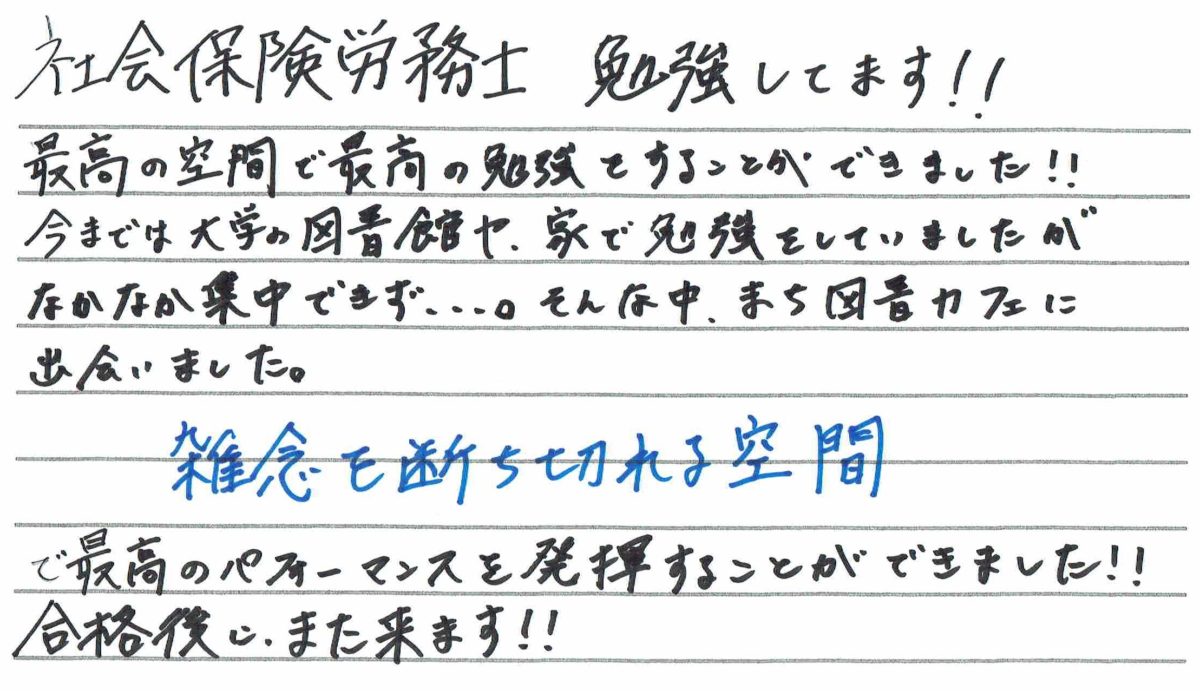 社会保険労務士 勉強してます!!
最高の空間で最高の勉強をすることができました!!
今までは大学の図書館や、家で勉強をしていましたが
なかなか集中できず、、、。そんな中、まち図書カフェに
出会いました。
雑念を断ち切れる空間
で最高のパフォーマンスを発揮することができました!!
合格後に、また来ます!!